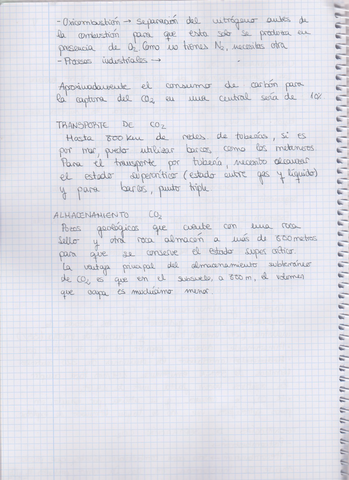 - Oxicombustión → separación del nitrógeno antes de
la combustión para que ésta solo se produzca en
presencia de O2. Como no tienes N2, necesitas otra
- Procesos industriales →
Aproximadamente el consumo de carbón para
la captura del CO2 en una central sería de 10%
TRANSPORTE DE CO2
Hasta 800 km de redes de tuberías, si es
por mar, puedo utilizar barcos como los metaneros
Para el transporte por tubería, necesito alcanzar
el estado supercrítico (estado entre gas y líquido)
y para barcos, punto triple.
ALMACENAMIENTO CO2
Pozos geológicos que cuente con una roca
sello y otra roca almacén a más de 800 metros
para que se conserve el estado supercrítico.
La ventaja principal del almacenamiento subterráneo
de CO2 es que en el subsuelo, a 800 m, el volumen
que ocupa es muchísimo menor.